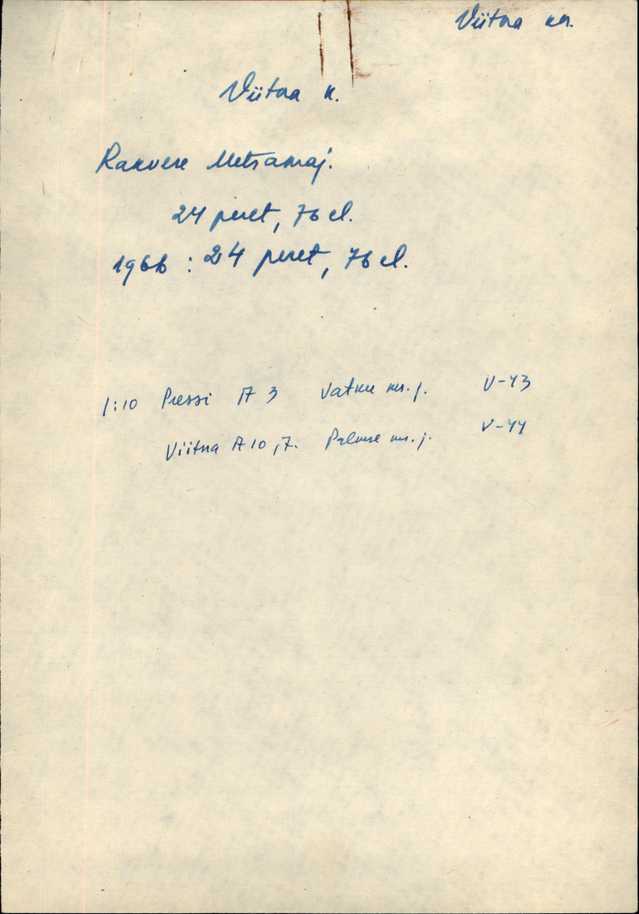 Viitna kn.
Viitna k.
Rakvere Metsamaj.
24 peret, 76 el.
1966 : 24 peret, 76 el.
1:10 Pressi A 3 Vatku ms. j. V-43
Viitna A 10, 7. Palmse ms. j. V-44